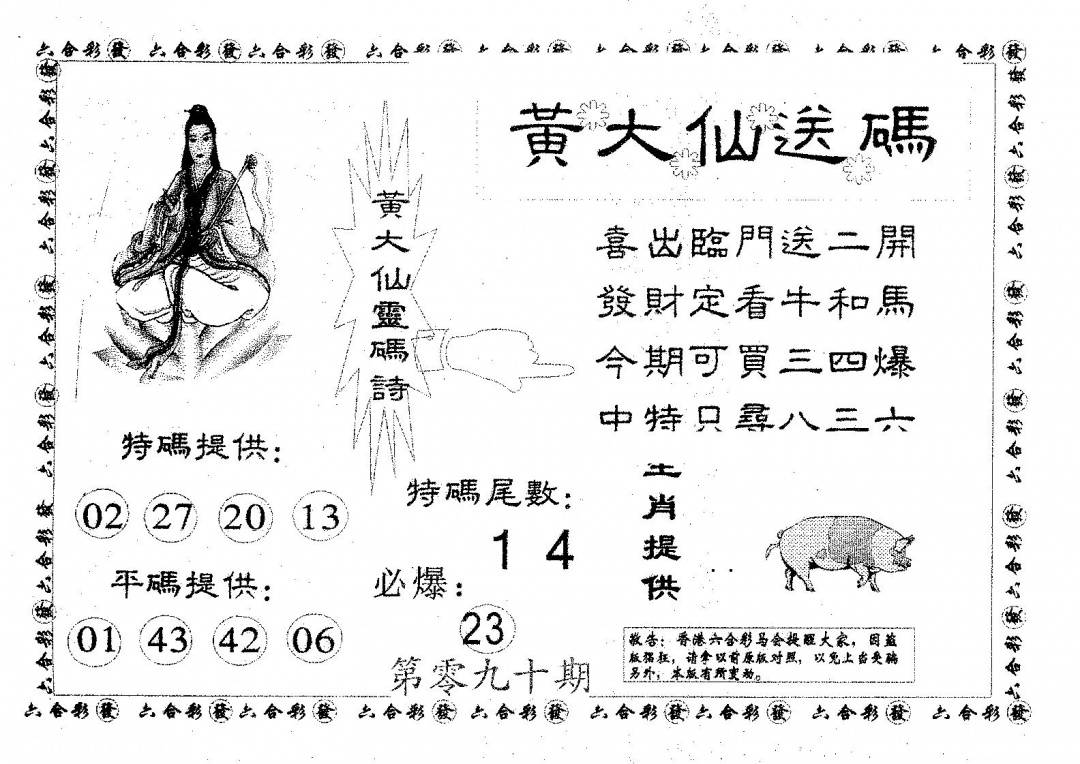 六合彩發 六合彩發 六合彩發 六合彩發 六合彩發 六合彩發 六合彩發 六合彩發 六合彩發
黃大仙送碼
黃大仙靈碼詩
喜出臨門送二開
發財定看牛和馬
今期可買三四爆
中特只尋八三六
特碼提供:
02 27 20 13
平碼提供:
01 43 42 06
特碼尾數:
1 4
必爆:
23
第零九十期
生肖提供
敬告: 香港六合彩马会提醒大家, 因盗
版猖狂, 请拿以前原版对照, 以免上当受骗
另外, 本版有所变动。
六合彩發 六合彩發 六合彩發 六合彩發 六合彩發 六合彩發 六合彩發 六合彩發 六合彩發